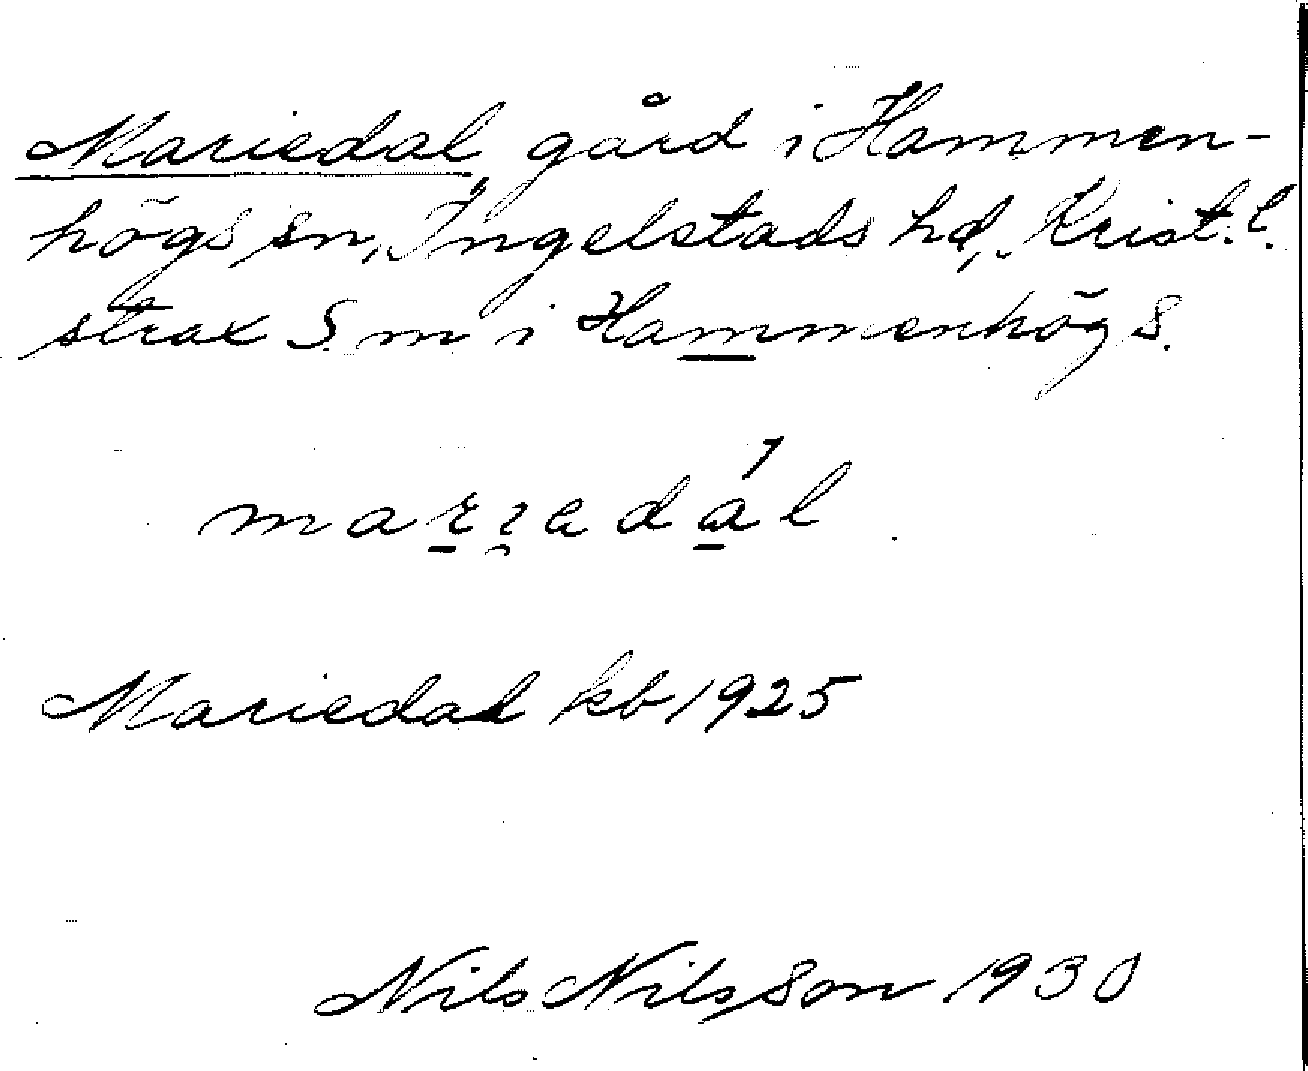 Mariedal, gård i Hammen-
högs sn, Ingelstads hd, Krist. l.
strax S. m i Hammenhög S.
marıadál
Mariedal kb 1925
Nils Nilsson 1930